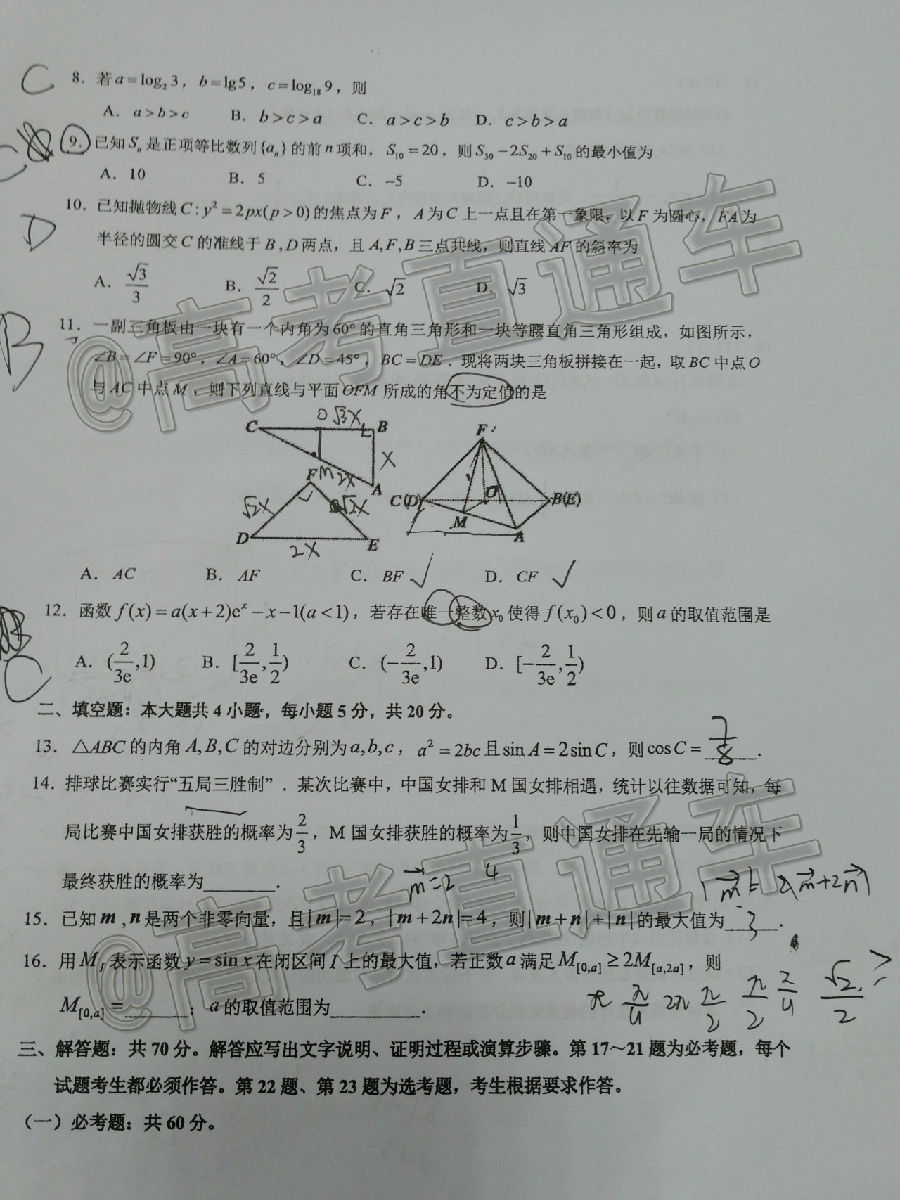 C
8. 若a=log₂3，b=lg5，c=log₁₈9，则
A. a>b>c B. b>c>a C. a>c>b D. c>a>b
9. 已知Sₙ是正项等比数列{aₙ}的前n项和，S₁₀=20，则S₃₀-2S₂₀+S₁₀的最小值为
A. 10 B. 5 C. -5 D. -10
D
10. 已知抛物线C:y²=2px(p>0)的焦点为F，A为C上一点且在第一象限，以F为圆心，FA为
半径的圆交C的准线于B,D两点，且A,F,B三点共线，则直线AF的斜率为
A. √3/3 B. √2/2 C. √2 D. √3
B
11. 一副三角板由一块有一个内角为60°的直角三角形和一块等腰直角三角形组成，如图所示，
∠B=∠F=90°，∠A=60°，∠D=45°，BC=DE．现将两块三角板拼接在一起，取BC中点O
与AC中点M，则下列直线与平面OFM所成的角不为定值的是
C O √3x B
x
F M 2x A
√2x √2x
D 2x E
F
C(D) O B(E)
M
A
A. AC B. AF C. BF √ D. CF √
12. 函数f(x)=a(x+2)eˣ-x-1(a<1)，若存在唯一整数x₀使得f(x₀)<0，则a的取值范围是
C
A. (2/3e,1) B. [2/3e,1/2) C. (-2/3e,1) D. [-2/3e,1/2)
二、填空题：本大题共4小题，每小题5分，共20分。
13. △ABC的内角A,B,C的对边分别为a,b,c，a²=2bc且sinA=2sinC，则cosC=7/8.
14. 排球比赛实行“五局三胜制”．某次比赛中，中国女排和M国女排相遇，统计以往数据可知，每
局比赛中国女排获胜的概率为2/3，M国女排获胜的概率为1/3，则中国女排在先输一局的情况下
最终获胜的概率为________.
m=2 4
15. 已知m,n是两个非零向量，且|m|=2，|m+2n|=4，则|m+n|+|n|的最大值为 3 .
16. 用M_I表示函数y=sinx在闭区间I上的最大值，若正数a满足M[0,a]≥2M[a,2a]，则
M[0,a]=________；a的取值范围为________.
π π/4 2π π/2 π/2 π/4 √2/2
三、解答题：共70分。解答应写出文字说明、证明过程或演算步骤。第17～21题为必考题，每个
试题考生都必须作答。第22题、第23题为选考题，考生根据要求作答。
(一) 必考题：共60分。
@高考直通车
@高考直通车